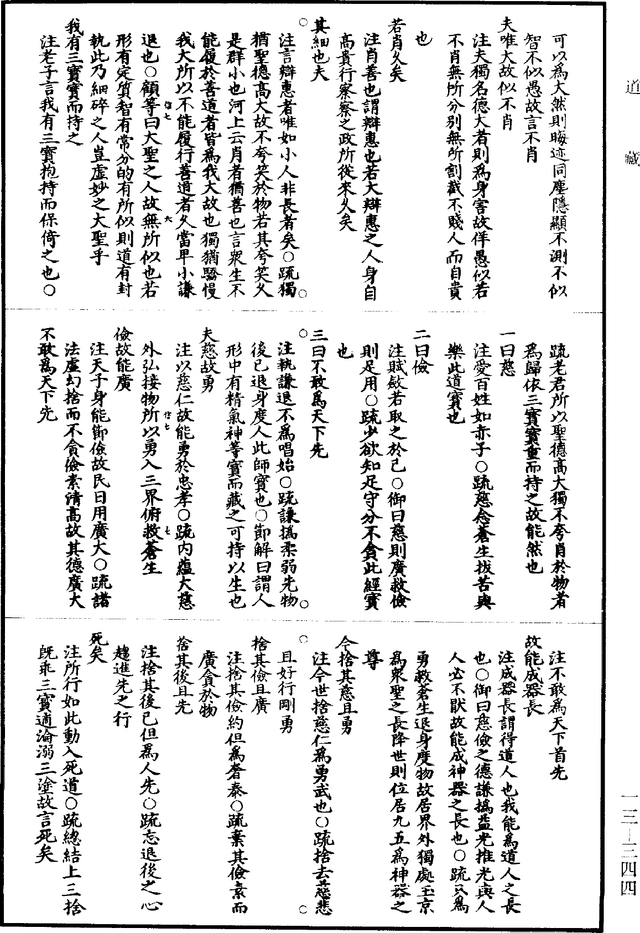 道藏
可以為大然則晦迹同塵隱顯不測不似
智不似愚故言不肖
夫唯大故似不肖
注夫獨名德大者則為身害故佯愚似若
不肖無所分別無所割截不賤人而自貴
也
若肖久矣
注肖善也謂辯惠也若大辯惠之人身自
高貴行察察之政所從來久矣
其細也夫
注言辯惠者唯如小人非長者矣○疏獨
猶聖德高大故不夸笑於物若其夸笑久
是群小也河上云肖者猶善也言眾生不
能履於善道者皆為我大故也獨猶驕慢
我大所以不能履行善道者久當早小謙
退也○顧等曰大聖之人故無所似也若
形有定質智有常分的有所似則道有封
執此乃細碎之人豈虛妙之大聖乎
我有三寶寶而持之
注老子言我有三寶抱持而保倚之也○
疏老君所以聖德高大獨不夸肖於物者
為歸依三寶寶重而持之故能然也
一曰慈
注愛百姓如赤子○疏慈念蒼生拔苦與
樂此道寶也
二曰儉
注賦斂若取之於己○御曰慈則廣救儉
則足用○疏少欲知足守分不貪此經寶
也
三曰不敢為天下先
注執謙退不為唱始○疏謙撝柔弱先物
後己退身度人此師寶也○節解曰謂人
形中有精氣神等寶而藏之可持以生也
夫慈故勇
注以慈仁故能勇於忠孝○疏內蘊大慈
外弘接物所以勇入三界俯救蒼生
儉故能廣
注天子身能節儉故民日用廣大○疏諸
法虛幻捨而不貪儉素清高故其德廣大
不敢為天下先
注不敢為天下首先
故能成器長
注成器長謂得道人也我能為道人之長
也○御曰慈儉之德謙撝益光推先與人
人必不猒故能成神器之長也○疏只為
勇救蒼生退身度物故居界外獨處玉京
為眾聖之長降世則位居九五為神器之
尊
今捨其慈且勇
注今世捨慈仁為勇武也○疏捨去慈悲
且好行剛勇
捨其儉且廣
注捨其儉約但為奢泰○疏棄其儉素而
廣貪於物
捨其後且先
注捨其後已但為人先○疏忘退後之心
趨進先之行
死矣
注所行如此動入死道○疏總結上三捨
既乖三寶適淪溺三塗故言死矣
一三—三四四